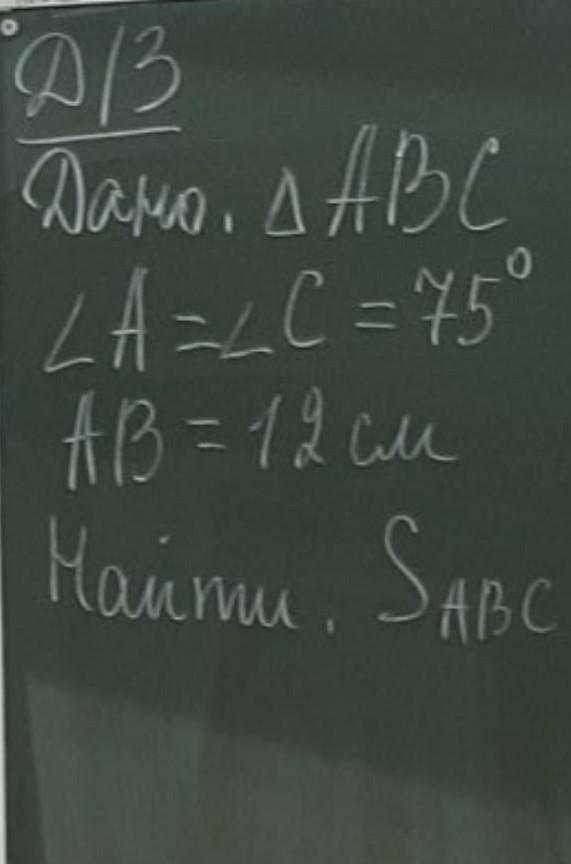 Д/З
Дано. △ABC
∠A=∠C=75°
AB=12 см
Найти. S_ABC